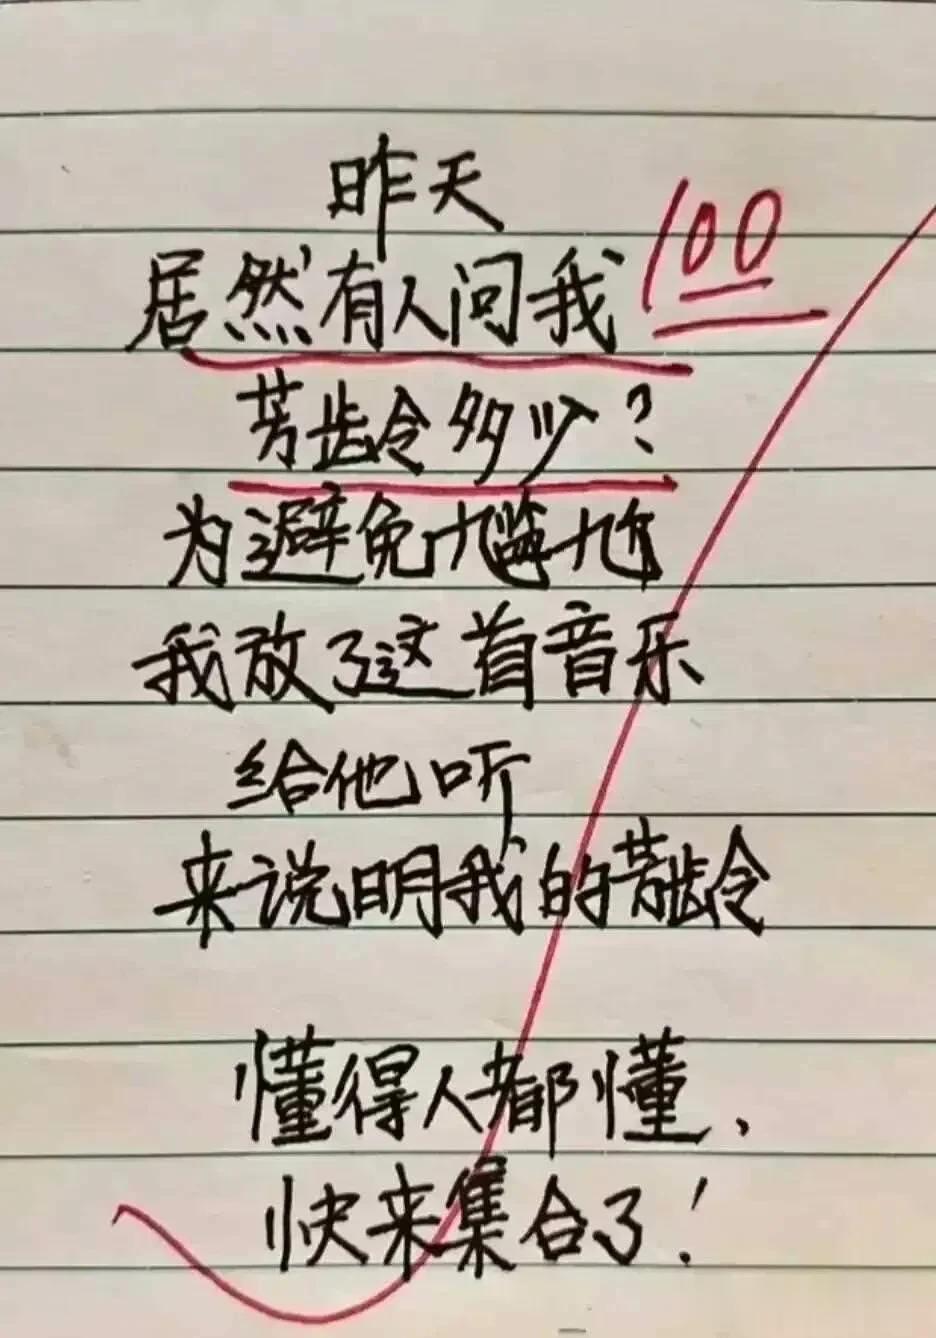 昨天
100
居然有人问我
芳龄多少?
为避免尴尬
我放了这首音乐
给他听
来说明我的芳龄
懂得人都懂、
快来集合了!